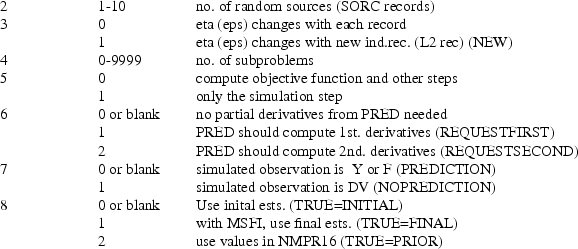 2 1-10 no. of random sources (SORC records)
3 0 eta (eps) changes with each record
1 eta (eps) changes with new ind.rec. (L2 rec) (NEW)
4 0-9999 no. of subproblems
5 0 compute objective function and other steps
1 only the simulation step
6 0 or blank no partial derivatives from PRED needed
1 PRED should compute 1st. derivatives (REQUESTFIRST)
2 PRED should compute 2nd. derivatives (REQUESTSECOND)
7 0 or blank simulated observation is Y or F (PREDICTION)
1 simulated observation is DV (NOPREDICTION)
8 0 or blank Use inital ests. (TRUE=INITIAL)
1 with MSFI, use final ests. (TRUE=FINAL)
2 use values in NMPR16 (TRUE=PRIOR)